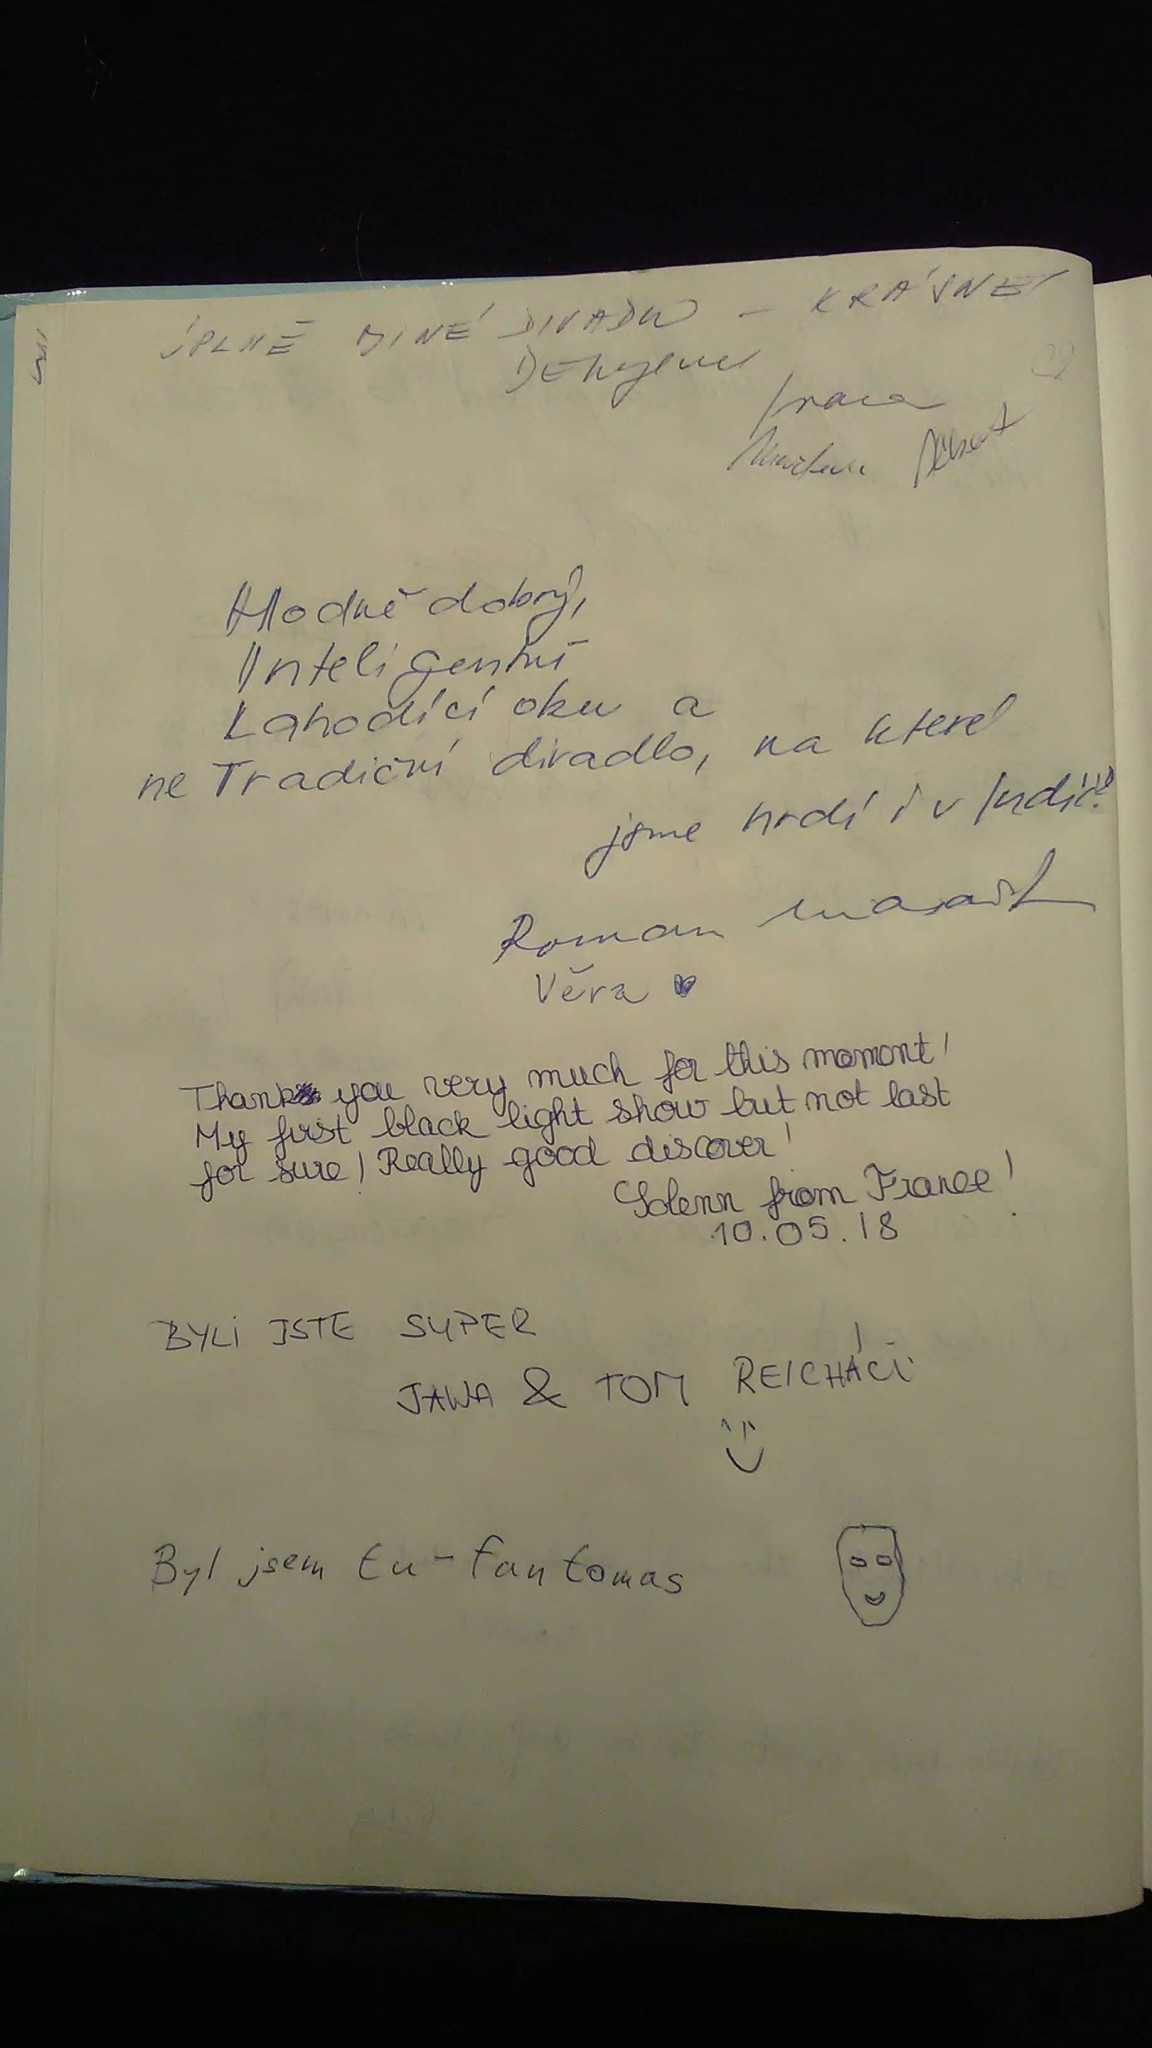 ÚPLNĚ JINÉ DIVADLO - KRÁSNÉ
Děkujeme
Hodně dobrý,
Inteligentní
Lahodící oku a
ne Tradiční divadlo, na které
jsme hrdí i v Indii!
Roman
Věra
Thank you very much for this moment!
My first black light show but not last
for sure! Really good discover!
Solenn from France!
10.05.18
BYLI JSTE SUPER
JAWA & TOM REICHÁCI
Byl jsem tu - fantomas